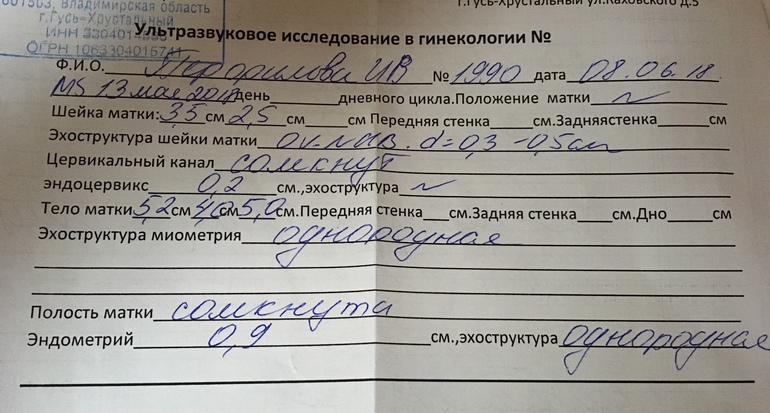 601503, Владимирская область
г.Гусь-Хрустальный ул.Каховского д.5
г.Гусь-Хрустальный
ИНН
ОГРН
Ультразвуковое исследование в гинекологии №
Ф.И.О. ИВ № 1990 дата 08.06.18.
MS 13 мая день дневного цикла.Положение матки N
Шейка матки: 3,5 см 2,5 см см Передняя стенка см.Задняястенка см
Эхоструктура шейки матки d=0,3-0,5см
Цервикальный канал сомкнут
эндоцервикс 0,2 см.,эхоструктура N
Тело матки 52 см 40 см 5,0 см.Передняя стенка см.Задняя стенка см.Дно см
Эхоструктура миометрия однородная
Полость матки сомкнута
Эндометрий 0,9 см.,эхоструктура однородная